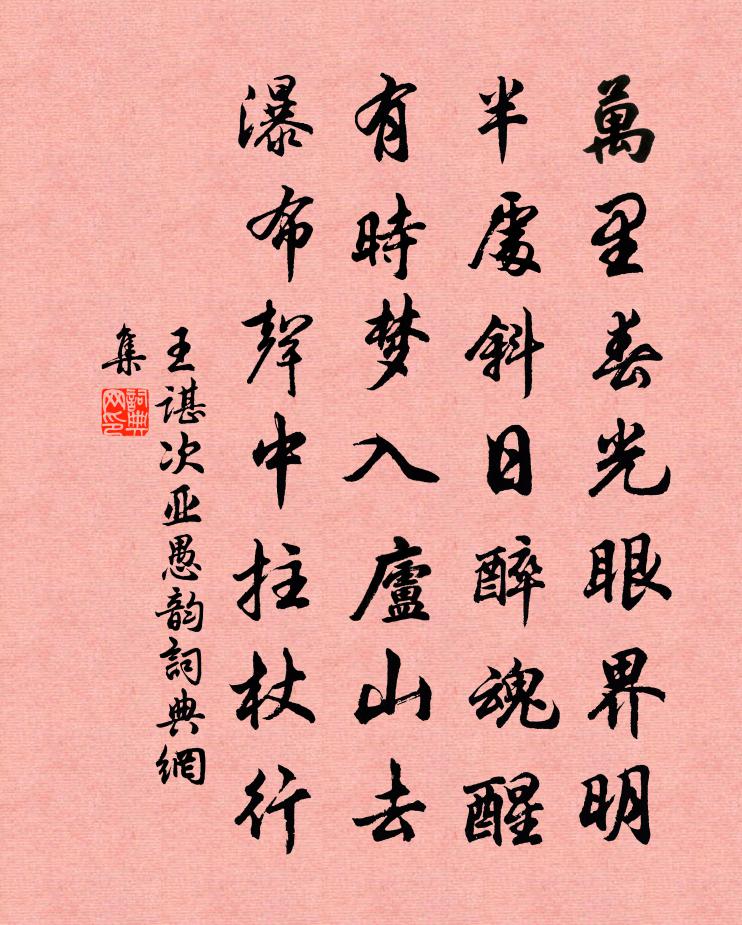 萬里春光眼界明
半處斜日醉魂醒
有時梦入廬山去
瀑布聲中拄杖行
王谌次亚愚韵詞典網
集
詞典
网印